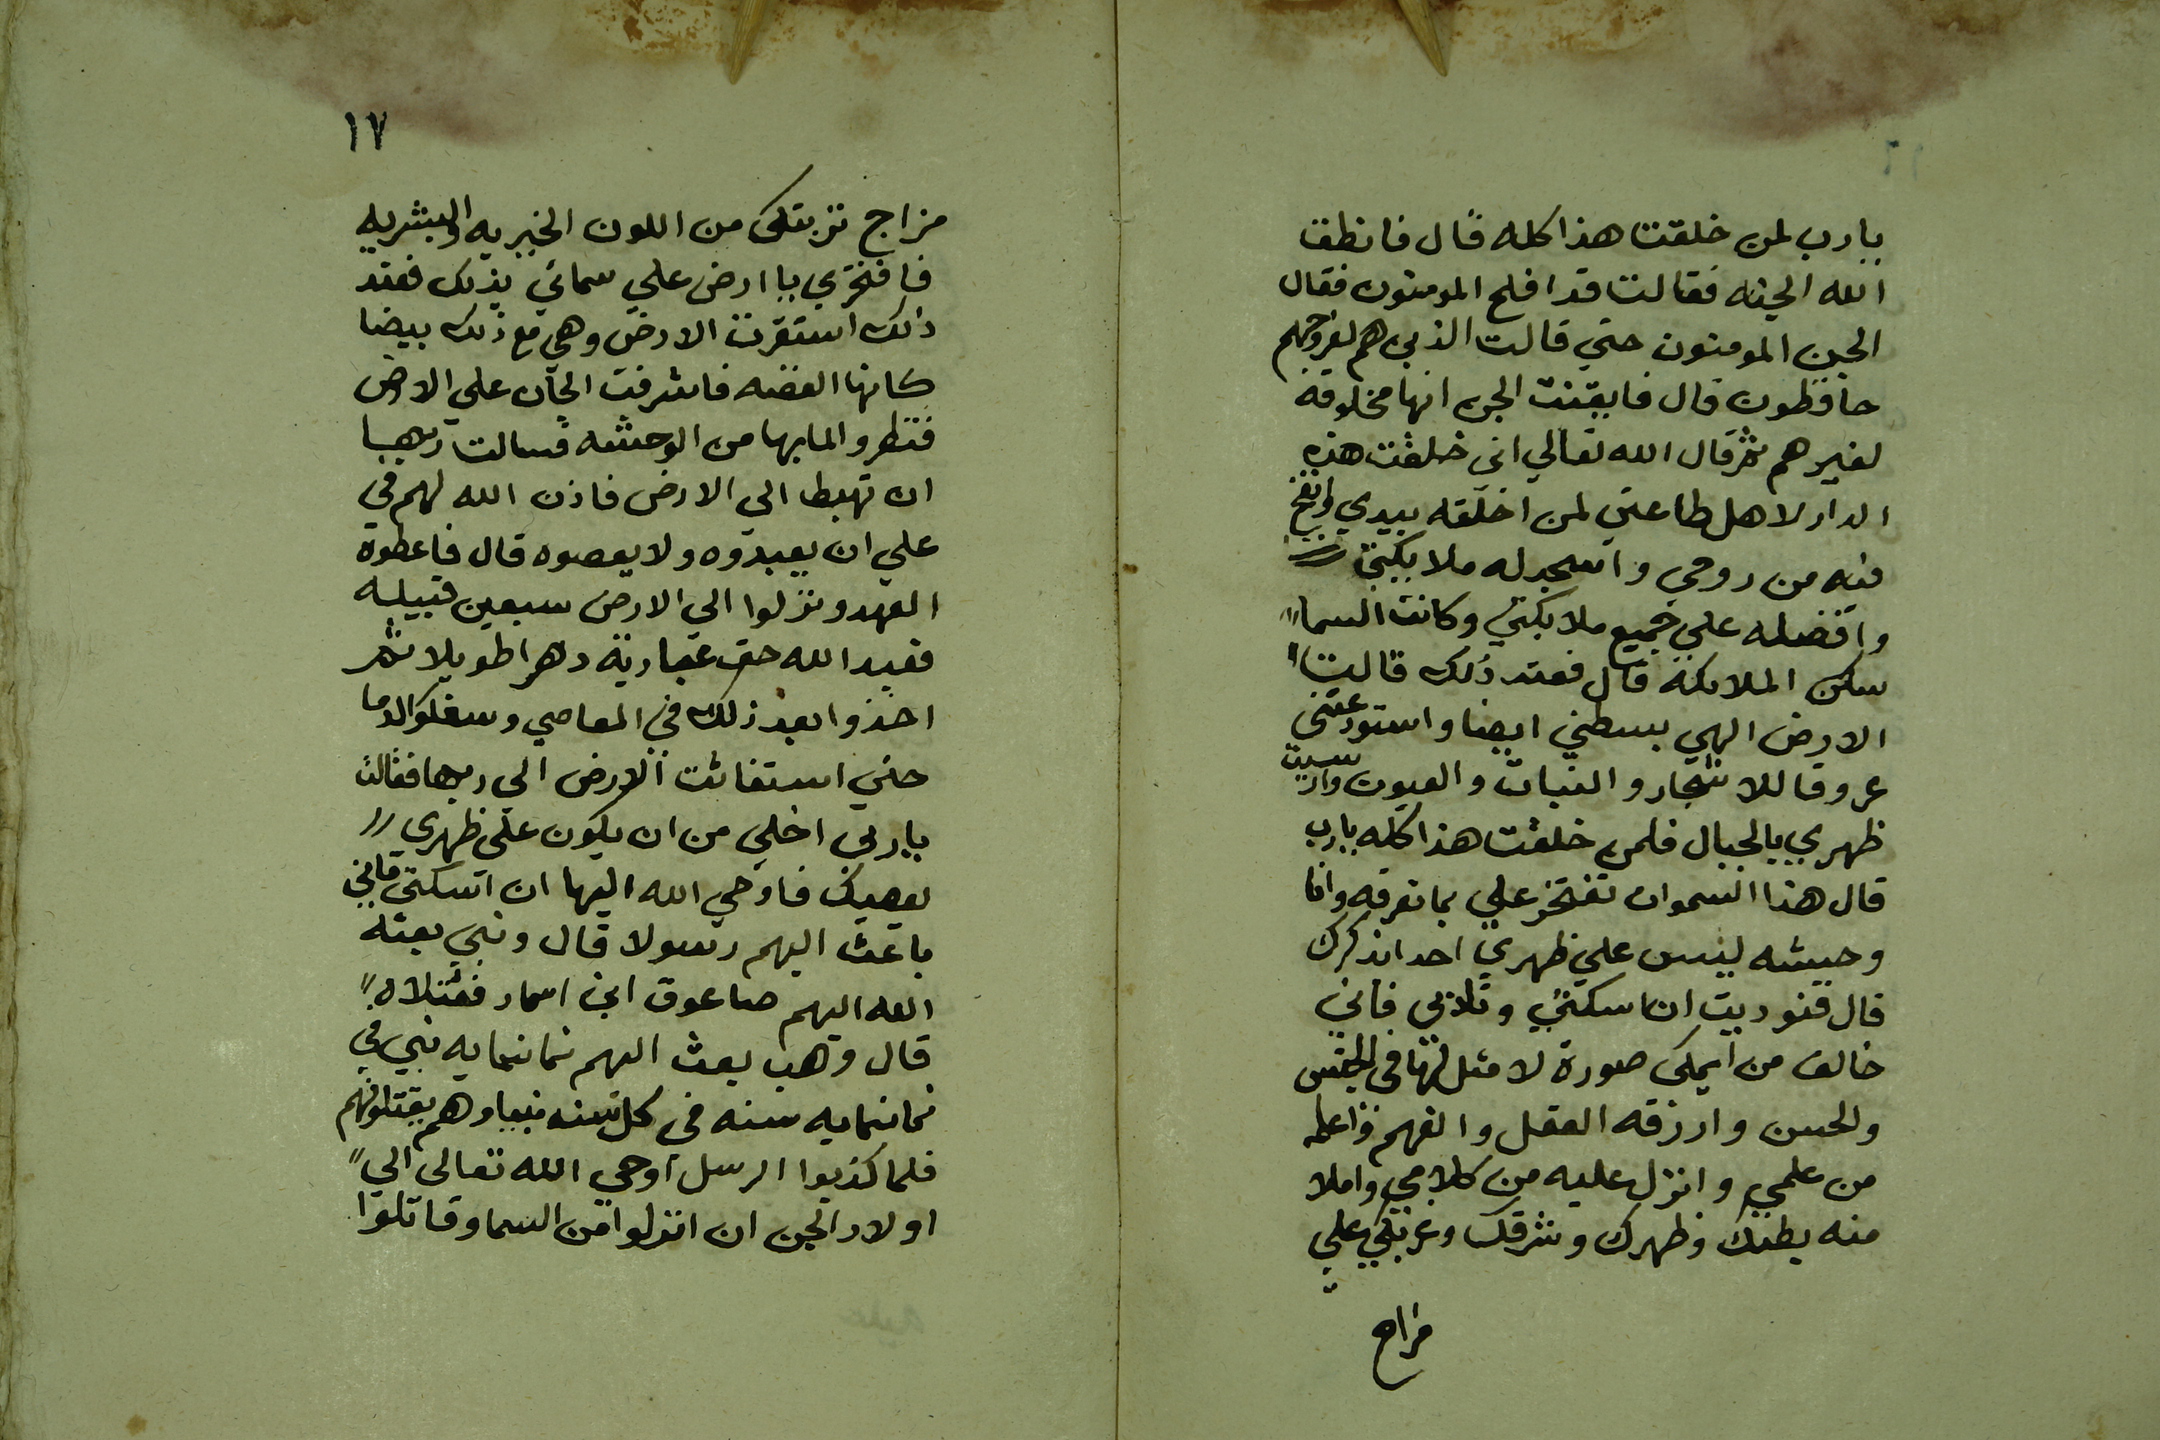 يارب لمن خلقت هذا كله قال فانطق
الله الجنه فقالت قد افلح المومنون فقال
الجن المومنون حتي قالت الذين هم لفروجهم
حافظون قال فايقنت الجن انها مخلوقة
لغيرهم ثم قال الله تعالي اني خلقت هذه
الدار لاهل طاعتي لمن اخلقه بيدي وانفخ
فيه من روحي واسجد له ملايكتي
وافضله علي جميع ملايكتي وكانت السما
سكن الملايكة قال فعند ذلك قالت
الارض الهي بسطني ايضا واستودعتني
عروقا للاشجار والنبات والعيون وارسيت
ظهري بالجبال فلمن خلقت هذا كله يارب
قال هذا السموات تفتخر علي بما تعرفه وانا
وحيشه ليس علي ظهري احدا يذكرك
قال فنوديت ان اسكتني وتلاتي فاني
خالق من ايمكي صورة لا مثل لها في الجنس
والحسن وارزقه العقل والفهم واعلمه
من علمي وانزل عليه من كلامي واملا
منه بطنك وظهرك وشرقك وغربكي علي
مزاج
١٧
مزاج تربتكي من اللون الخيريه والبشريه
فافتخري يا ارض علي سمائي بذلك فعند
ذالك استقرت الارض وهي مع ذلك بيضا
كانها الفضه فاشرفت الجان علي الارض
فنظروا لما بها من الوحشه فسالت ربها
ان تهبط الي الارض فاذن الله لهم في
علي ان يعبدوه ولا يعصوه قال فاعطوه
العهد ونزلوا الي الارض سبعين قبيله
فعبد الله حق عبادية دهرا طويلا ثم
اخذوا بعد ذلك في المعاصي وسفكوا الدما
حتي استغاثت الارض الي ربها فقالت
ياربي اخلي من ان يكون علي ظهري
يعصيك فاوحي الله اليها ان اسكتي فاني
باعث اليهم رسولا قال ونبي بعثه
الله اليهم صاعوق ابن اسمار فقتلاه
قال وهب بعث اليهم ثمانمايه نبي في
ثمانمايه سنه في كل سنه نبيا وهم يقتلونهم
فلما كذبوا الرسل اوحي الله تعالى الي
اولاد الجن ان انزلوا من السما وقاتلوا